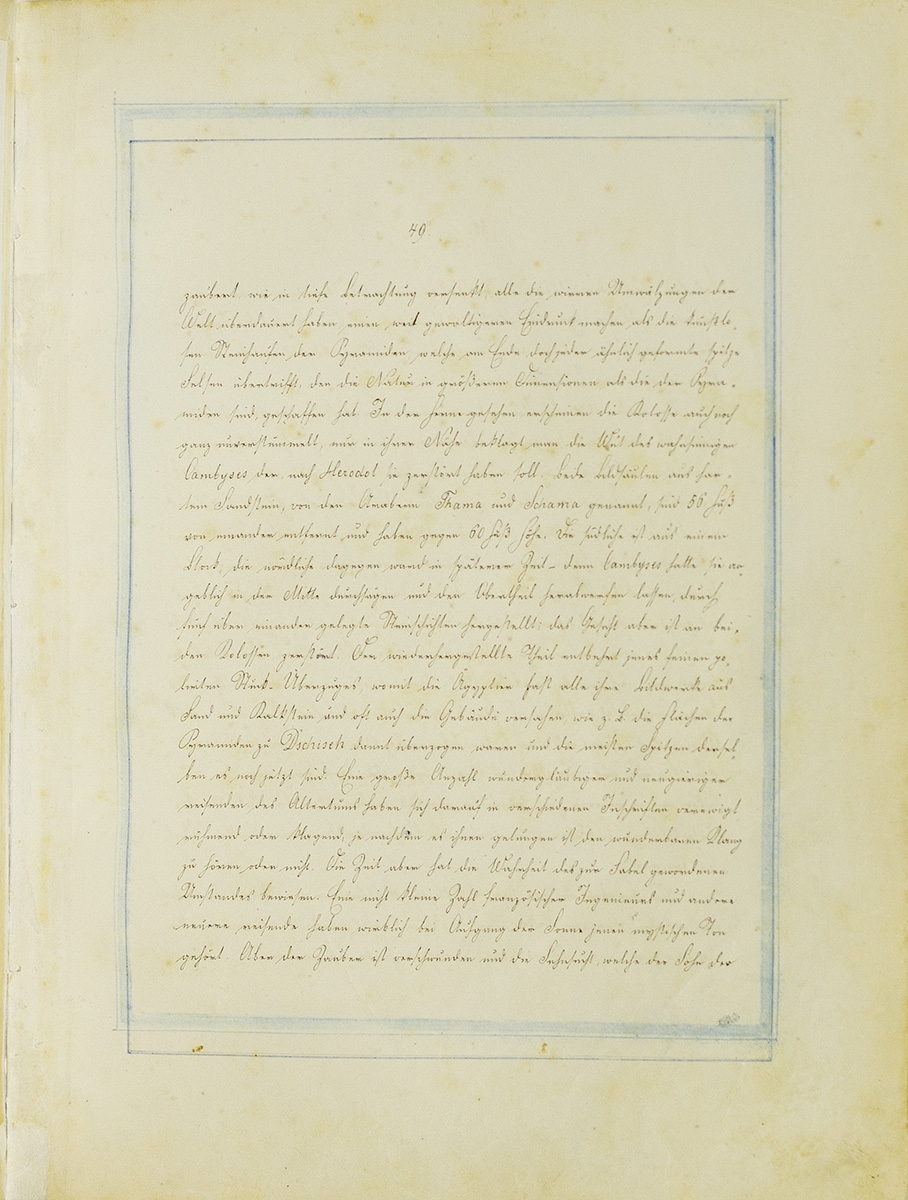 49
zaubert, wie in tiefe Betrachtung versenkt, alle die wirren Umwälzungen der
Welt überdauert haben einen weit gewaltigeren Eindruck machen, als die kunstlo-
sen Steinhaufen der Pyramiden, welche am Ende doch jeder ähnlich geformte spitze
Felsen übertrifft, den die Natur in größeren Dimensionen als die der Pyra-
miden sind, geschaffen hat. In der Ferne gesehen erscheinen die Kolosse auch noch
ganz unverstümmelt, nur in ihrer Nähe beklagt man die Wut des wahnsinnigen
Cambyses, der nach Herodot sie zerstört haben soll. Beide Bildsäulen aus har-
tem Sandstein, von den Arabern Thama und Schama genannt, sind 56 Fuß
von einander entfernt und haben gegen 60 Fuß Höhe. Die südliche ist aus einem
Block, die nördliche dagegen ward in späterer Zeit – denn Cambyses hatte sie an-
geblich in der Mitte durchsägen und den Obertheil herabwerfen lassen, durch
fünf über einander gelegte Steinschichten hergestellt; das Gesicht aber ist an bei-
den Kolossen zerstört. Der wiederhergestellte Theil entbehrt jenes feinen po-
lirten Stuck-Überzuges, womit die Ägyptier fast alle ihre Bildwerke aus
Sand und Kalkstein und oft auch die Gebäude versahen wie z. B. die Flächen der
Pyramiden zu Dschiseh damit überzogen waren und die meisten Spitzen dersel-
ben es noch jetzt sind. Eine große Anzahl wundergläubiger und neugieriger
Reisenden des Altertums haben sich darauf in verschiedenen Inschriften verewigt
rühmend oder klagend, je nachdem es ihnen gelungen ist den wunderbaren Klang
zu hören oder nicht. Die Zeit aber hat die Wahrheit des zur Fabel gewordenen
Umstandes bewiesen. Eine nicht kleine Zahl französischer Ingenieurs und andere
neuere Reisende haben wirklich bei Aufgang der Sonne jenen mystischen Ton
gehört. Aber der Zauber ist verschwunden und die Sehnsucht, welche der Sohn der